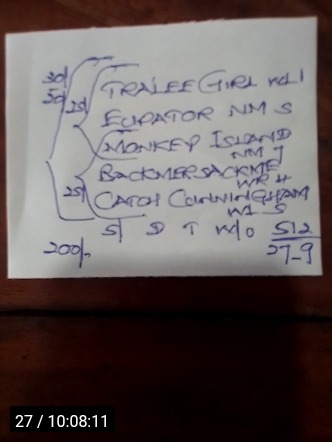 30/
50/
25/
TRALEE GIRL WL 1
EUPATOR NM S
MONKEY ISLAND
NM J
BACKMERSACKME
WR H
25/
CATCH CUNNINGHAM
WI S
S/ D T W/O 512
200/-
27-9
27 / 10:08:11